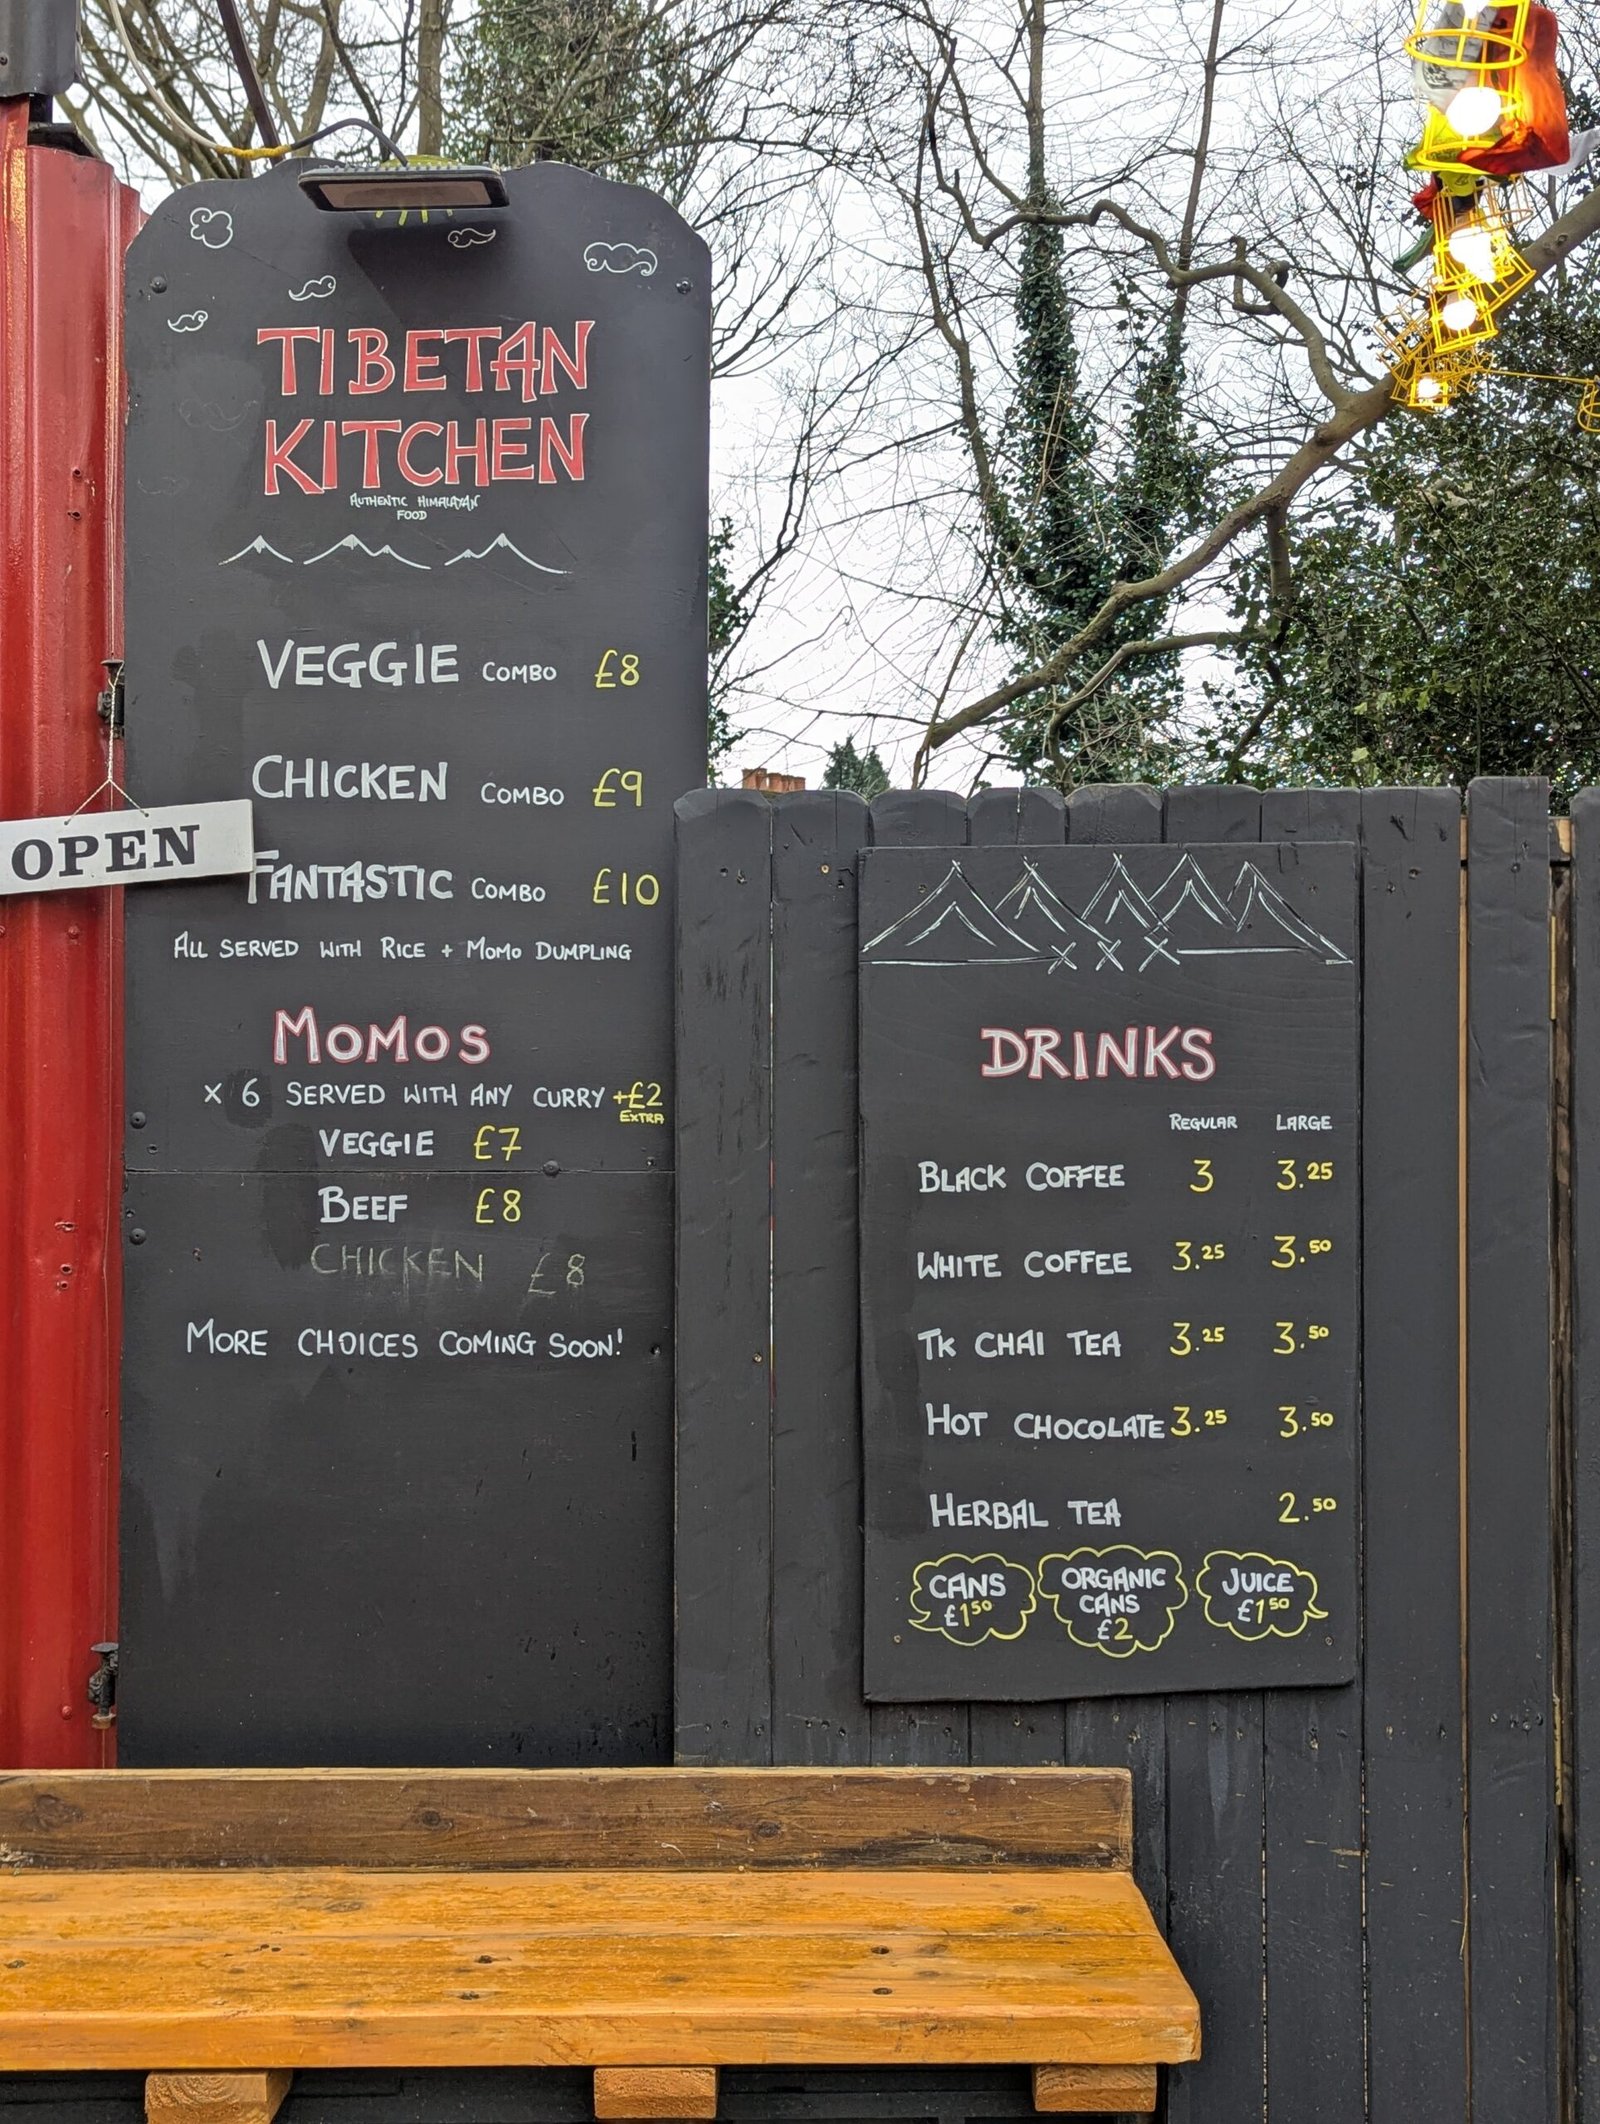 TIBETAN
KITCHEN
AUTHENTIC HIMALAYAN
FOOD
VEGGIE COMBO £8
CHICKEN COMBO £9
OPEN
FANTASTIC COMBO £10
ALL SERVED WITH RICE + MOMO DUMPLING
MOMOS
x 6 SERVED WITH ANY CURRY +£2
EXTRA
VEGGIE £7
BEEF £8
CHICKEN £8
MORE CHOICES COMING SOON!
DRINKS
REGULAR LARGE
BLACK COFFEE 3 3.25
WHITE COFFEE 3.25 3.50
TK CHAI TEA 3.25 3.50
HOT CHOCOLATE 3.25 3.50
HERBAL TEA 2.50
CANS
£1 50
ORGANIC
CANS
£2
JUICE
£1 50